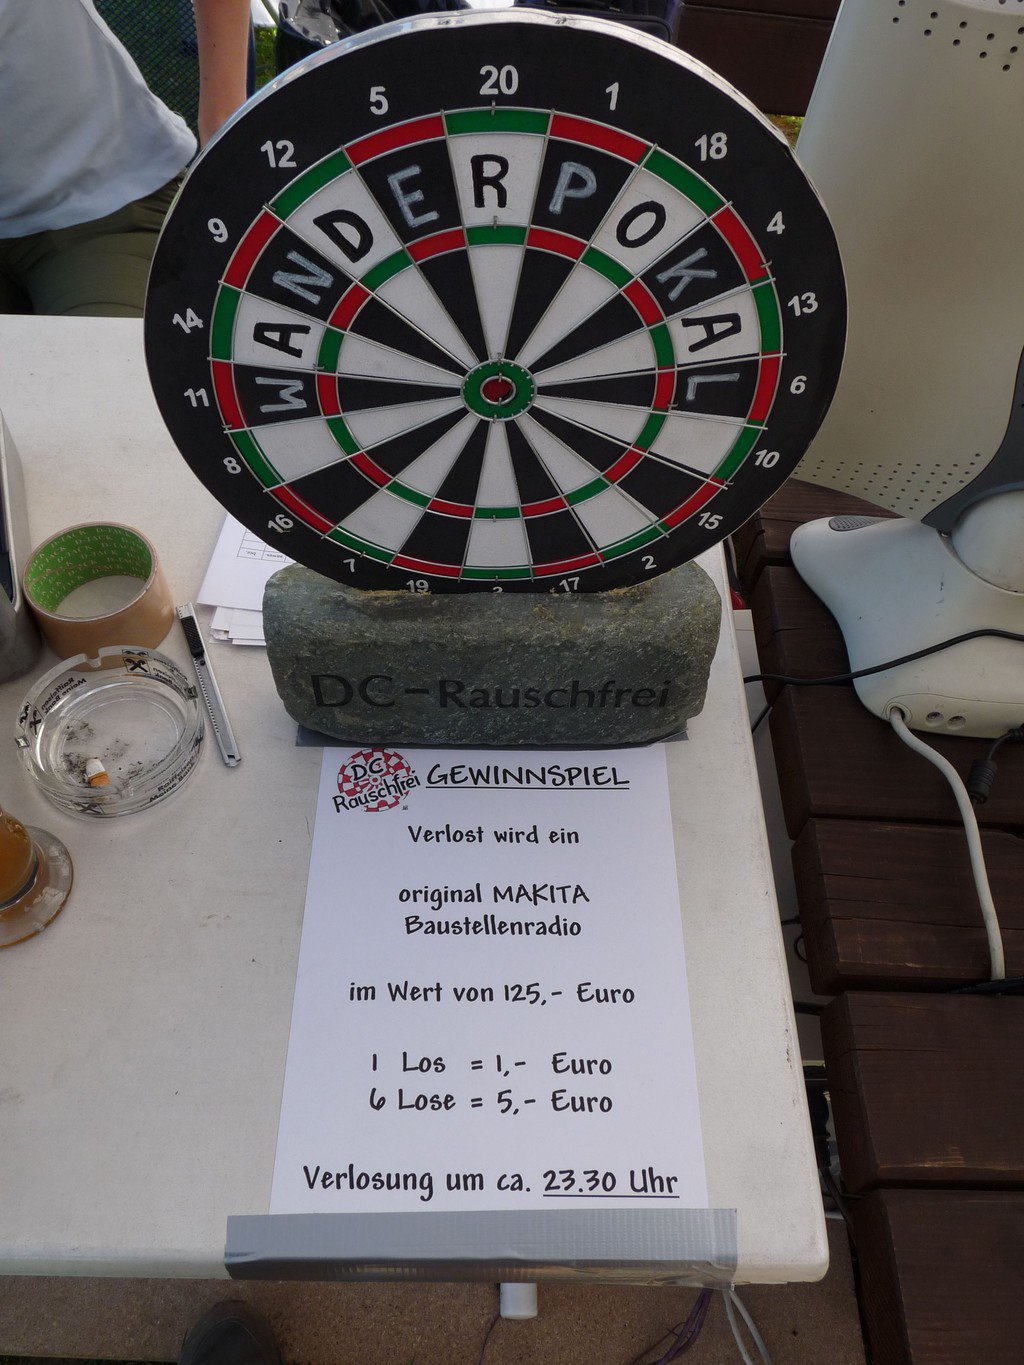 20
1
18
4
13
6
10
15
2
17
3
19
7
16
8
11
14
9
12
5
WANDERPOKAL
DC-Rauschfrei
DC
Rauschfrei
GEWINNSPIEL
Verlost wird ein
original MAKITA
Baustellenradio
im Wert von 125,- Euro
1 Los = 1,- Euro
6 Lose = 5,- Euro
Verlosung um ca. 23.30 Uhr
Raiffeisen
Meine Bank